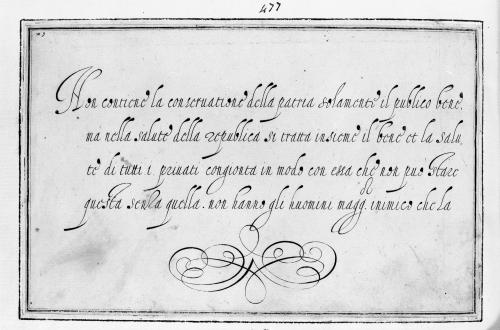 477
Non contiene la conseruatione della patria solamente il publico bene.
ma nella salute della republica si tratta insieme il bene et la salu,
te di tutti i priuati congionta in modo con essa che non puo stare
questa senza quella. non hanno gli huomini magg. inimico che la